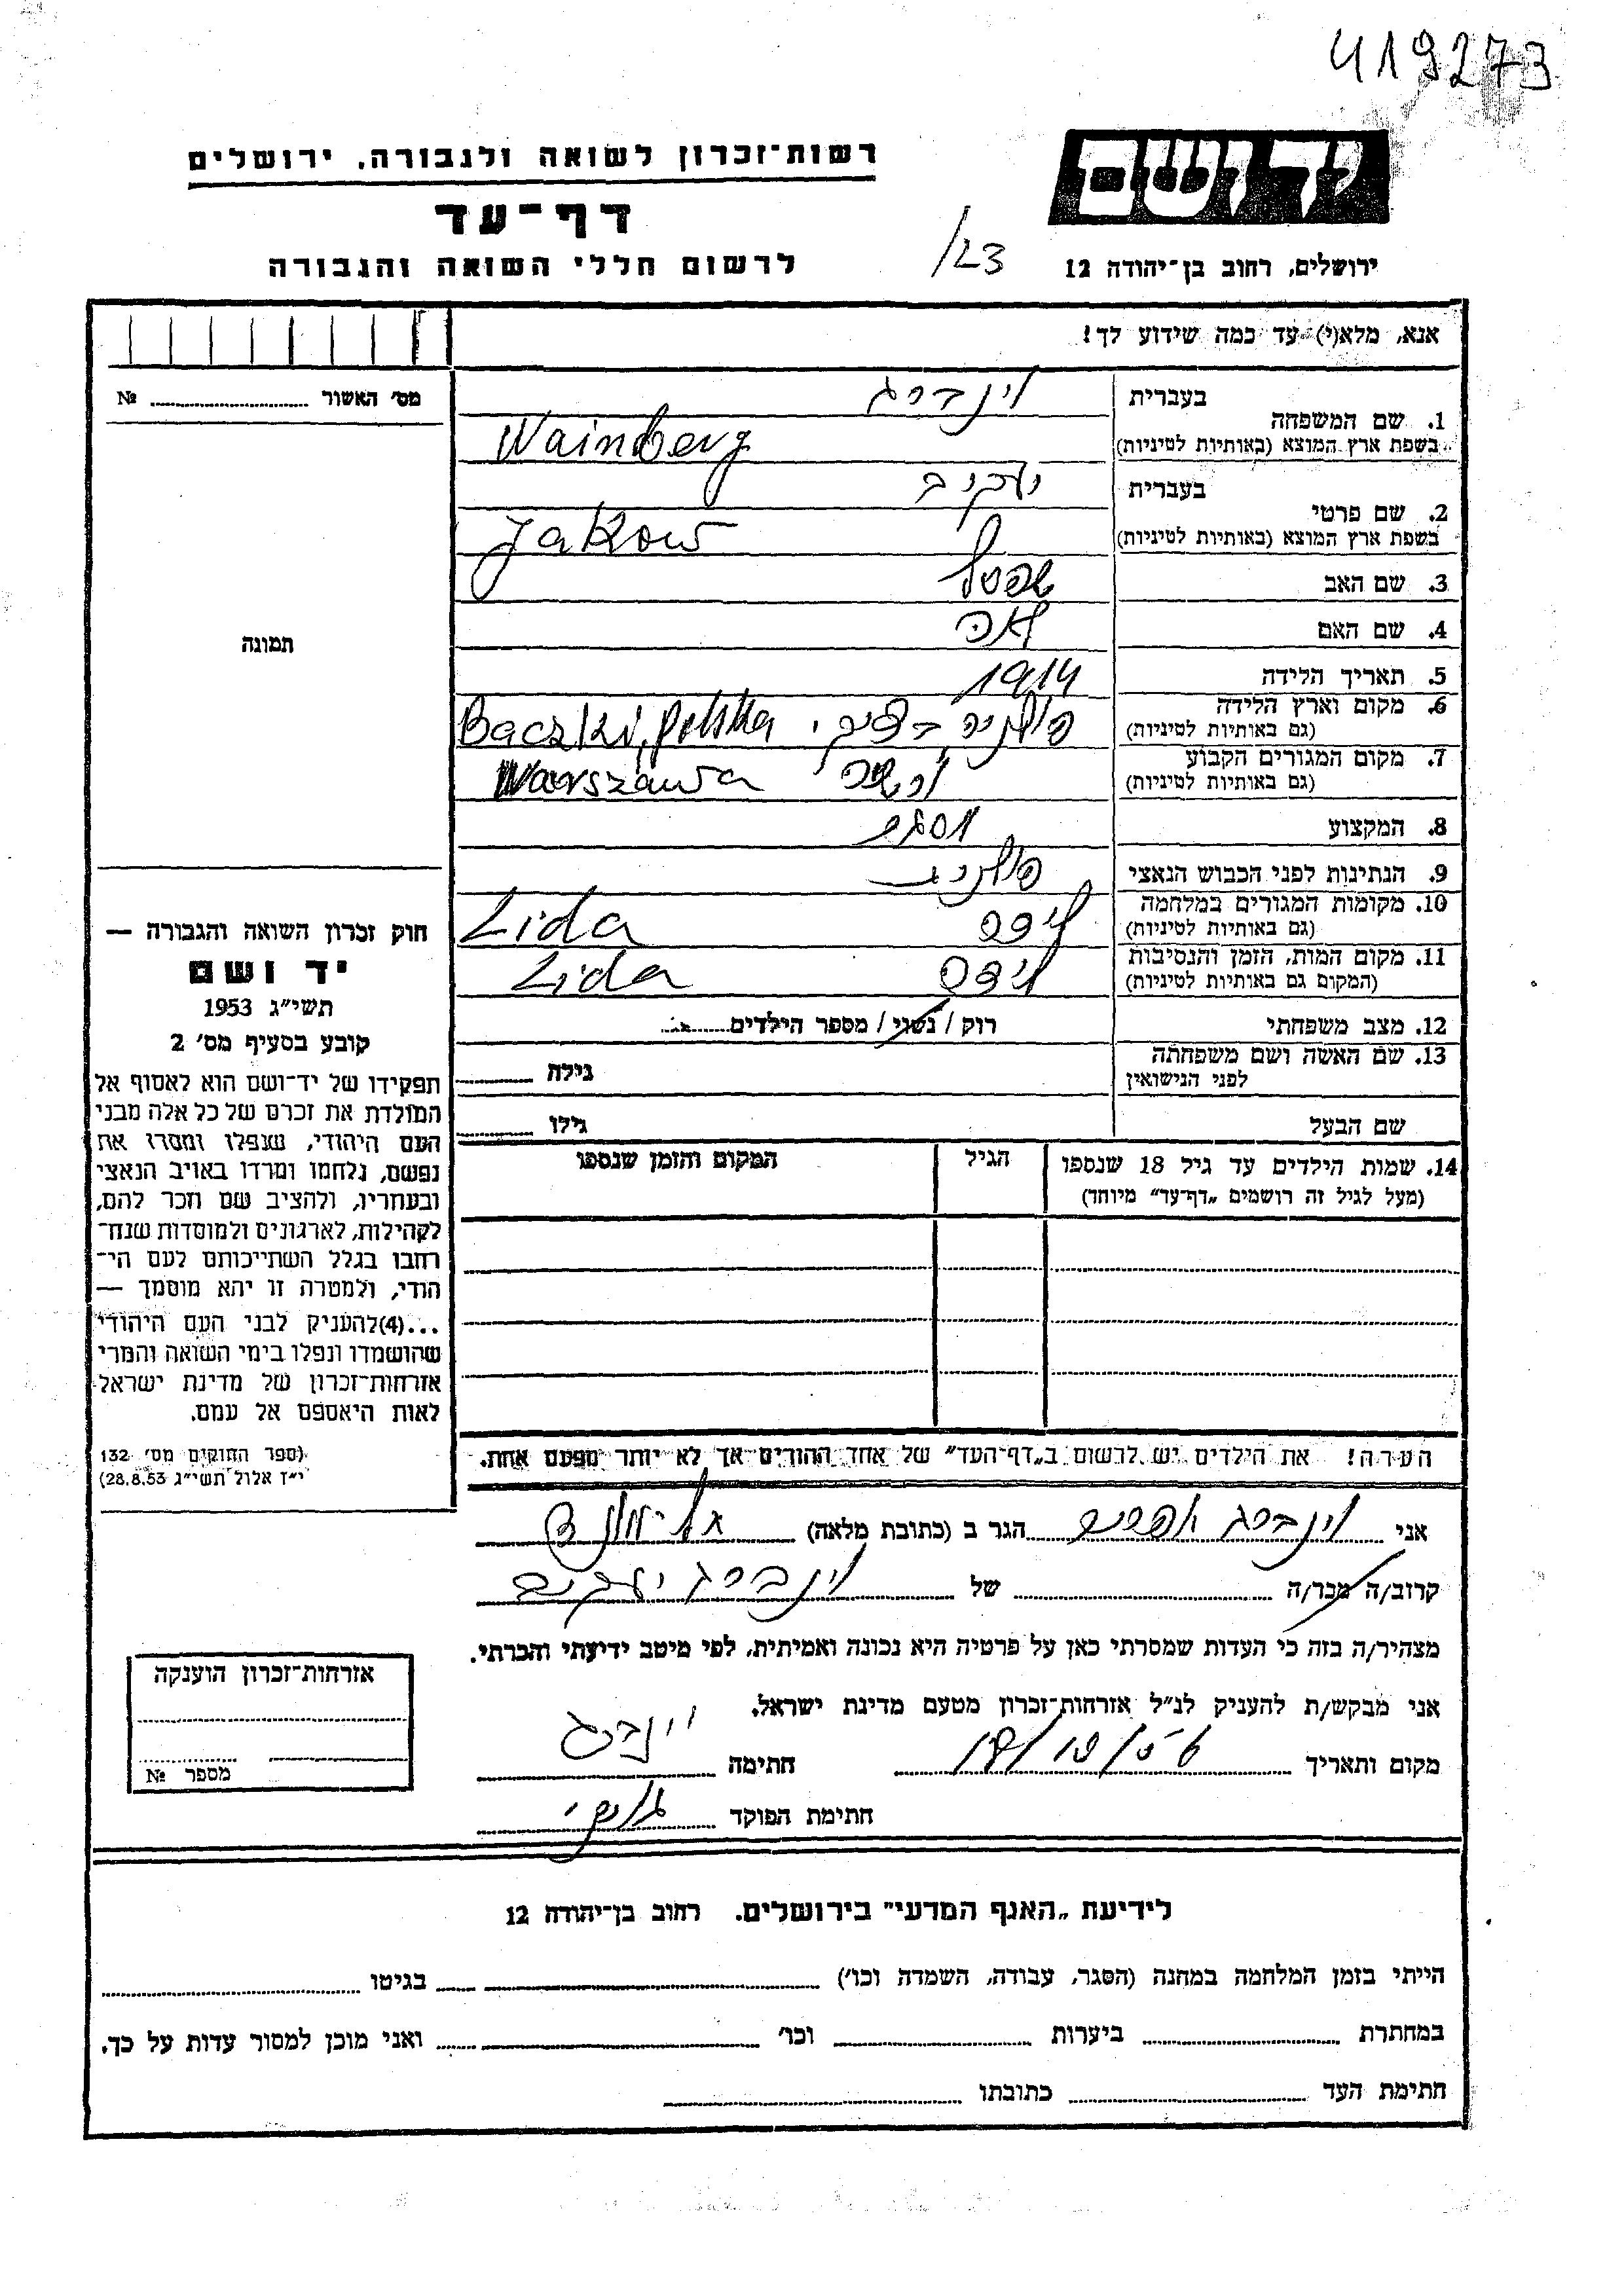 419273
יד ושם
רשות-זכרון לשואה ולגבורה, ירושלים
דף-עד
לרשום חללי השואה והגבורה
ירושלים, רחוב בן-יהודה 12
/23
אנא, מלא(י) עד כמה שידוע לך!
מס׳ האשור ............ №
1. שם המשפחה בעברית וינברג
בשפת ארץ המוצא (באותיות לטיניות) Wainberg
2. שם פרטי בעברית יעקוב
בשפת ארץ המוצא (באותיות לטיניות) Jakow
3. שם האב שפסל
4. שם האם לאה
5. תאריך הלידה 1914
6. מקום וארץ הלידה פולניה Baczki, Polska
(גם באותיות לטיניות)
7. מקום המגורים הקבוע ורשה Warszawa
(גם באותיות לטיניות)
8. המקצוע
9. הנתינות לפני הכבוש הנאצי פולנית
10. מקומות המגורים במלחמה לידה Lida
(גם באותיות לטיניות)
11. מקום המות, הזמן והנסיבות לידה Lida
(המקום גם באותיות לטיניות)
12. מצב משפחתי רוק / נשוי / מספר הילדים
13. שם האשה ושם משפחתה גילה
לפני הנישואין
שם הבעל גילו
14. שמות הילדים עד גיל 18 שנספו הגיל המקום והזמן שנספו
(מעל לגיל זה רושמים „דף-עד״ מיוחד)
הערה! את הילדים יש לרשום ב„דף-העד״ של אחד ההורים אך לא יותר מפעם אחת.
תמונה
חוק זכרון השואה והגבורה —
יד ושם
תשי״ג 1953
קובע בסעיף מס׳ 2
תפקידו של יד-ושם הוא לאסוף אל
המולדת את זכרם של כל אלה מבני
העם היהודי, שנפלו ומסרו את
נפשם, נלחמו ומרדו באויב הנאצי
ובעוזריו, ולהציב שם וזכר להם,
לקהילות, לארגונים ולמוסדות שנח-
רחבו בגלל השתייכותם לעם הי-
הודי, ולמטרה זו יהא מוסמך —
...(4)להעניק לבני העם היהודי
שהושמדו ונפלו בימי השואה והמרי
אזרחות-זכרון של מדינת ישראל
לאות היאספם אל עמם.
(ספר החוקים מס׳ 132
י״ז אלול תשי״ג 28.8.53)
אני וינברג אפרים הגר ב (כתובת מלאה)
קרוב/ה מכר/ה של וינברג יעקוב
מצהיר/ה בזה כי העדות שמסרתי כאן על פרטיה היא נכונה ואמיתית, לפי מיטב ידיעתי והכרתי.
אני מבקש/ת להעניק לנ״ל אזרחות-זכרון מטעם מדינת ישראל.
מקום ותאריך חתימה וינברג
חתימת הפוקד
אזרחות-זכרון הוענקה
מספר №
לידיעת „האגף המדעי״ בירושלים. רחוב בן-יהודה 12
הייתי בזמן המלחמה במחנה (הסגר, עבודה, השמדה וכו׳) בגיטו
במחתרת ביערות וכו׳ ואני מוכן למסור עדות על כך.
חתימת העד כתובתו